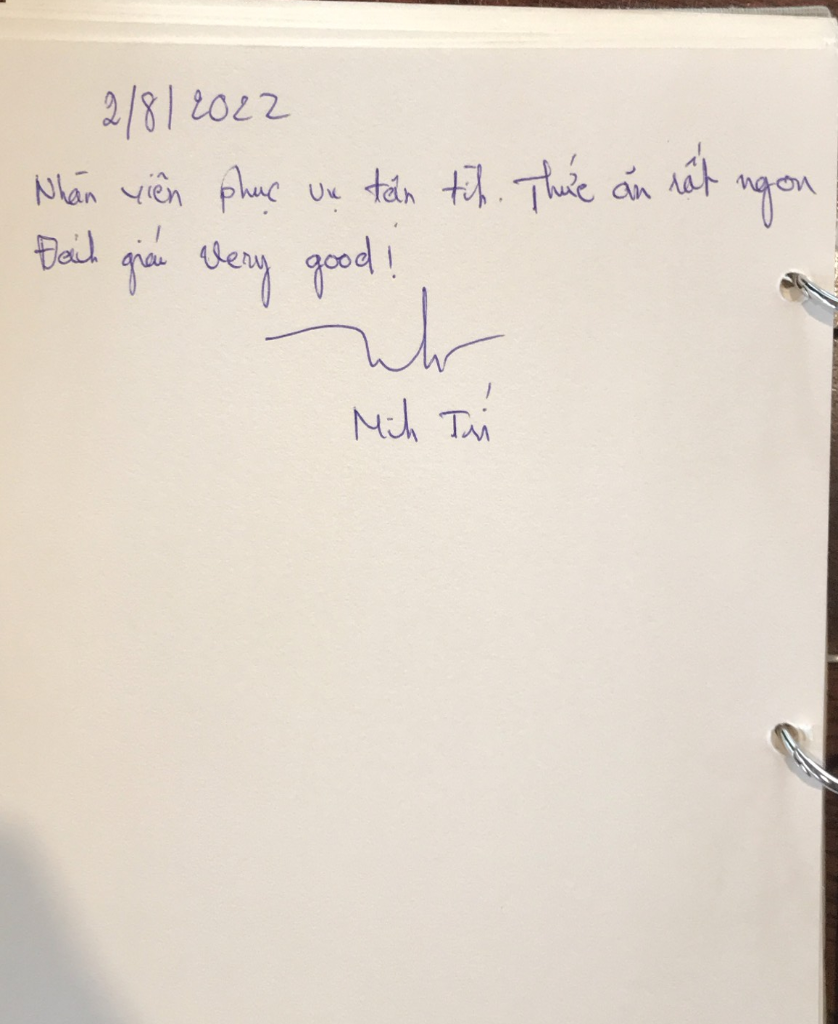 2/8/2022
Nhân viên phục vụ tận tình. Thức ăn rất ngon
Đánh giá very good!
Minh Trí